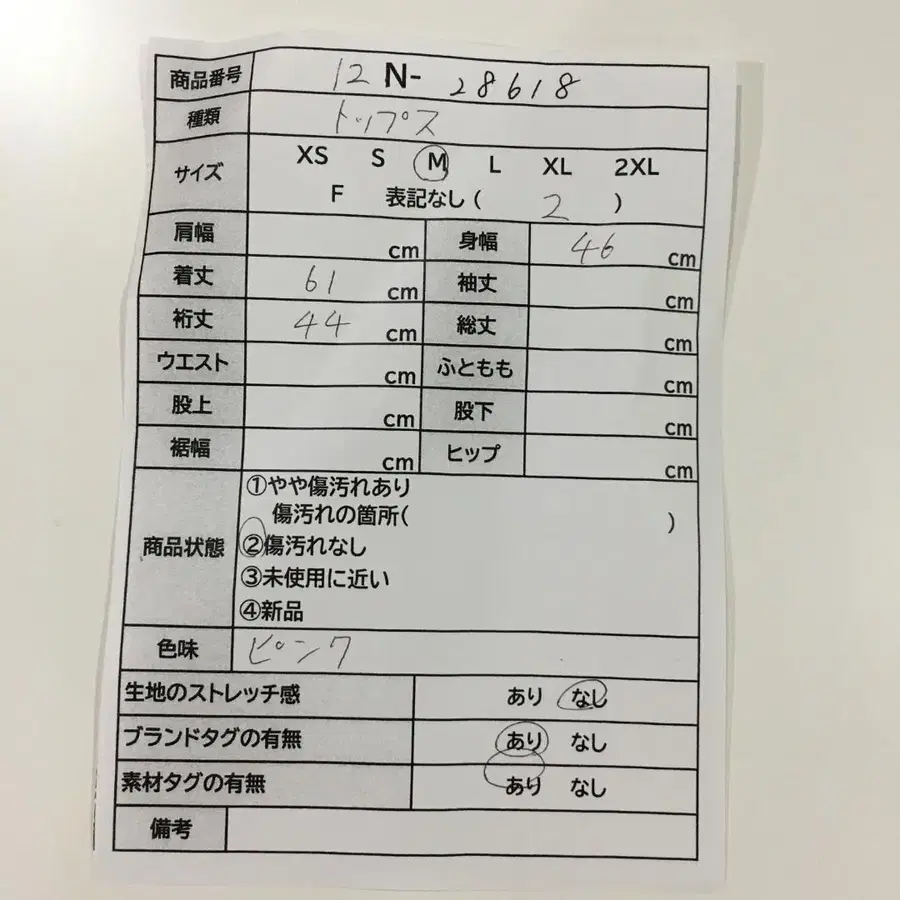 商品番号 12 N- 28618
種類 トップス
サイズ XS S M L XL 2XL
F 表記なし ( 2 )
肩幅 cm 身幅 46 cm
着丈 61 cm 袖丈 cm
裄丈 44 cm 総丈 cm
ウエスト cm ふともも cm
股上 cm 股下 cm
裾幅 cm ヒップ cm
商品状態 ①やや傷汚れあり
傷汚れの箇所( )
②傷汚れなし
③未使用に近い
④新品
色味 ピンク
生地のストレッチ感 あり なし
ブランドタグの有無 あり なし
素材タグの有無 あり なし
備考